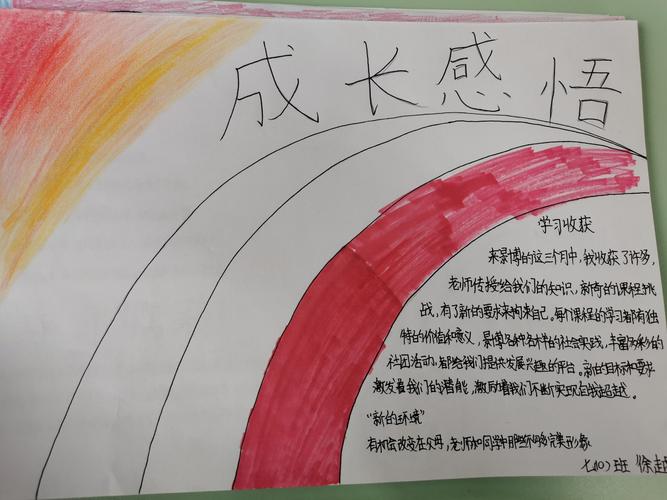 成长感悟
学习收获
来景博的这三个月中，我收获了许多，
老师传授给我们的知识，新奇的课程挑
战，有了新的要求来约束自己。每个课程的学习都有独
特的价值和意义，景博各种各样的社会实践，丰富多彩的
社团活动，都给我们提供发展兴趣的平台。新的目标和要求
激发着我们的潜能，激励着我们不断实现自我超越。
“新的环境”
有机会改变在父母，老师和同学中那些不完美形象
七（10）班 徐